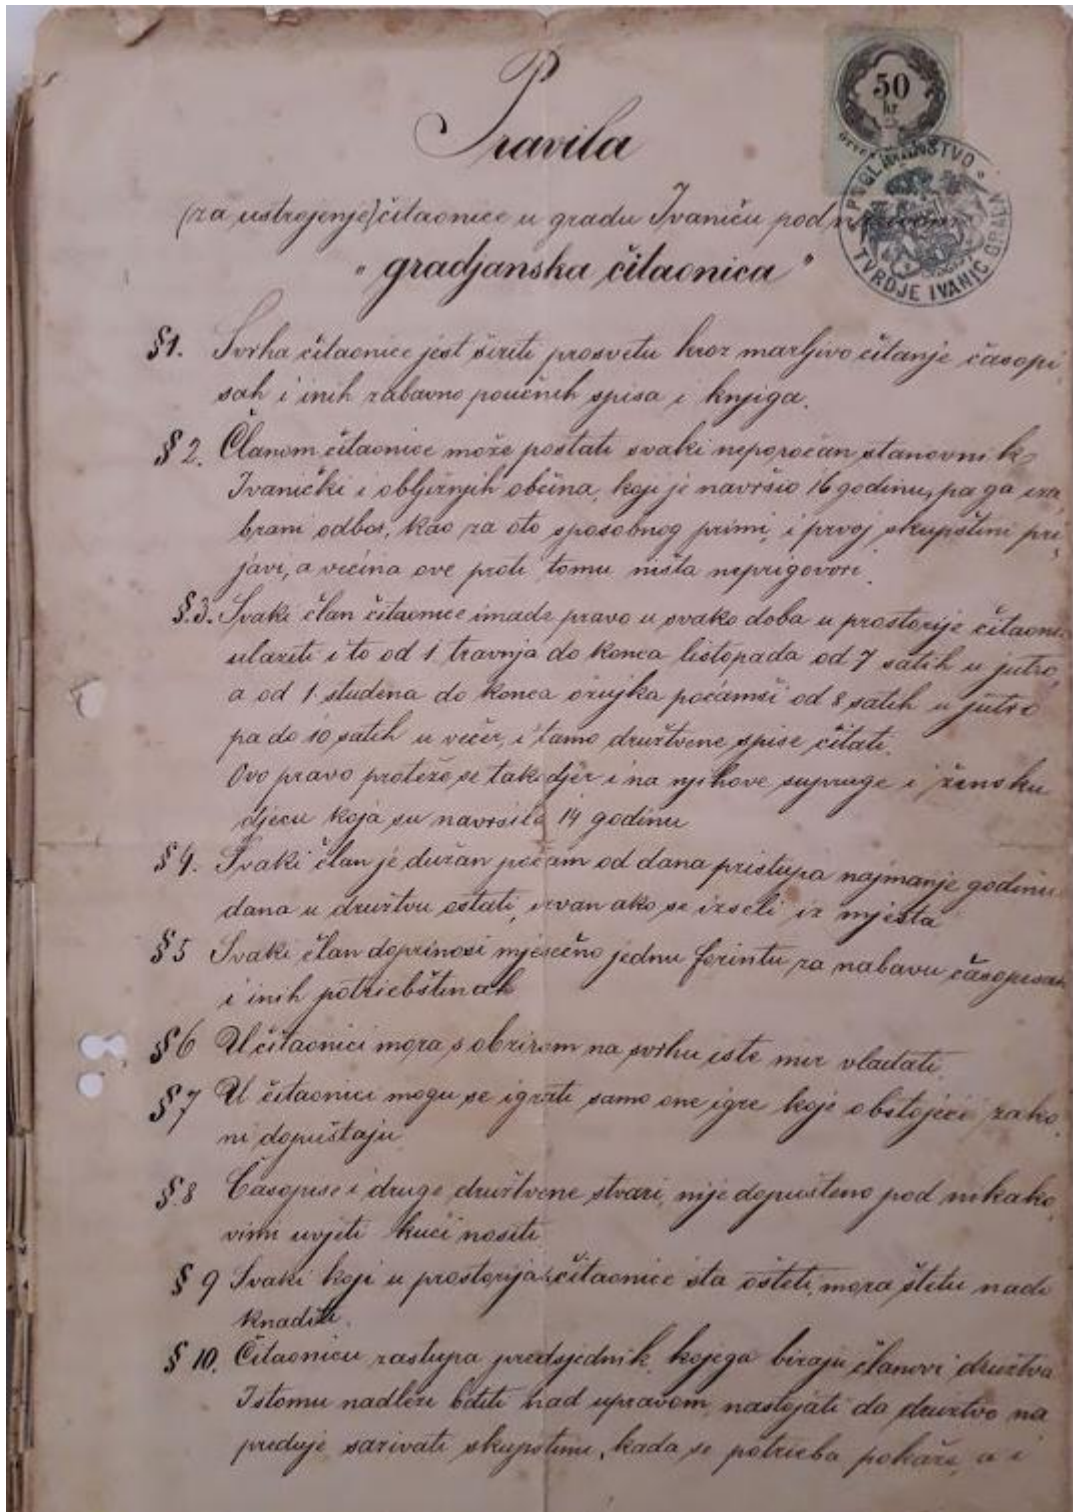 Pravila
50
kr
(za ustrojenje) čitaonice u gradu Ivaniću pod
POGLAVARSTVO
TVRDJE IVANIĆ GRADA
„gradjanska čitaonica”
§1. Svrha čitaonice jest širiti prosvetu kroz marljivo čitanje časopi
sah i inih zabavno poučnih spisa i knjiga.
§2. Članom čitaonice može postati svaki neporočan stanovnik
Ivanićki i obližnjih občina, koji je navršio 16 godinu, pa ga iza
brani odbor, kao za oto sposobnog primi, i prvoj skupštini pri
javi, a većina ove proti tomu ništa neprigovori.
§.3. Svaki član čitaonice imade pravo u svako doba u prostorije čitaonice
ulaziti i to od 1. travnja do konca listopada od 7 satih u jutro,
a od 1. studena do konca ožujka počamši od 8 satih u jutro
pa do 10 satih u večer, i tamo družtvene spise čitati.
Ovo pravo proteže se takodjer i na njihove supruge i žensku
djecu koja su navršila 14 godinu
§4. Svaki član je dužan počam od dana pristupa najmanje godinu
dana u družtvu ostati, izvan ako se izseli iz mjesta
§5 Svaki član doprinosi mjesečno jednu forintu za nabavu časopisah
i inih potriebštinah
§6 U čitaonici mora s obzirom na svrhu iste mir vladati.
§7 U čitaonici mogu se igrati samo one igre koje obstojeći zako
ni dopuštaju
§.8 Časopise i druge družtvene stvari, nije dopušteno pod nikako
vimi uvjeti kući nositi.
§9 Svaki koji u prostorijah čitaonice šta ošteti, mora štetu nado
knaditi.
§10. Čitaonicu zastupa predsjednik, kojega biraju članovi družtva
Istomu nadleži bditi nad upravom, nastojati da družtvo na
preduje sazivati skupštinu, kada se potrieba pokaže, a i